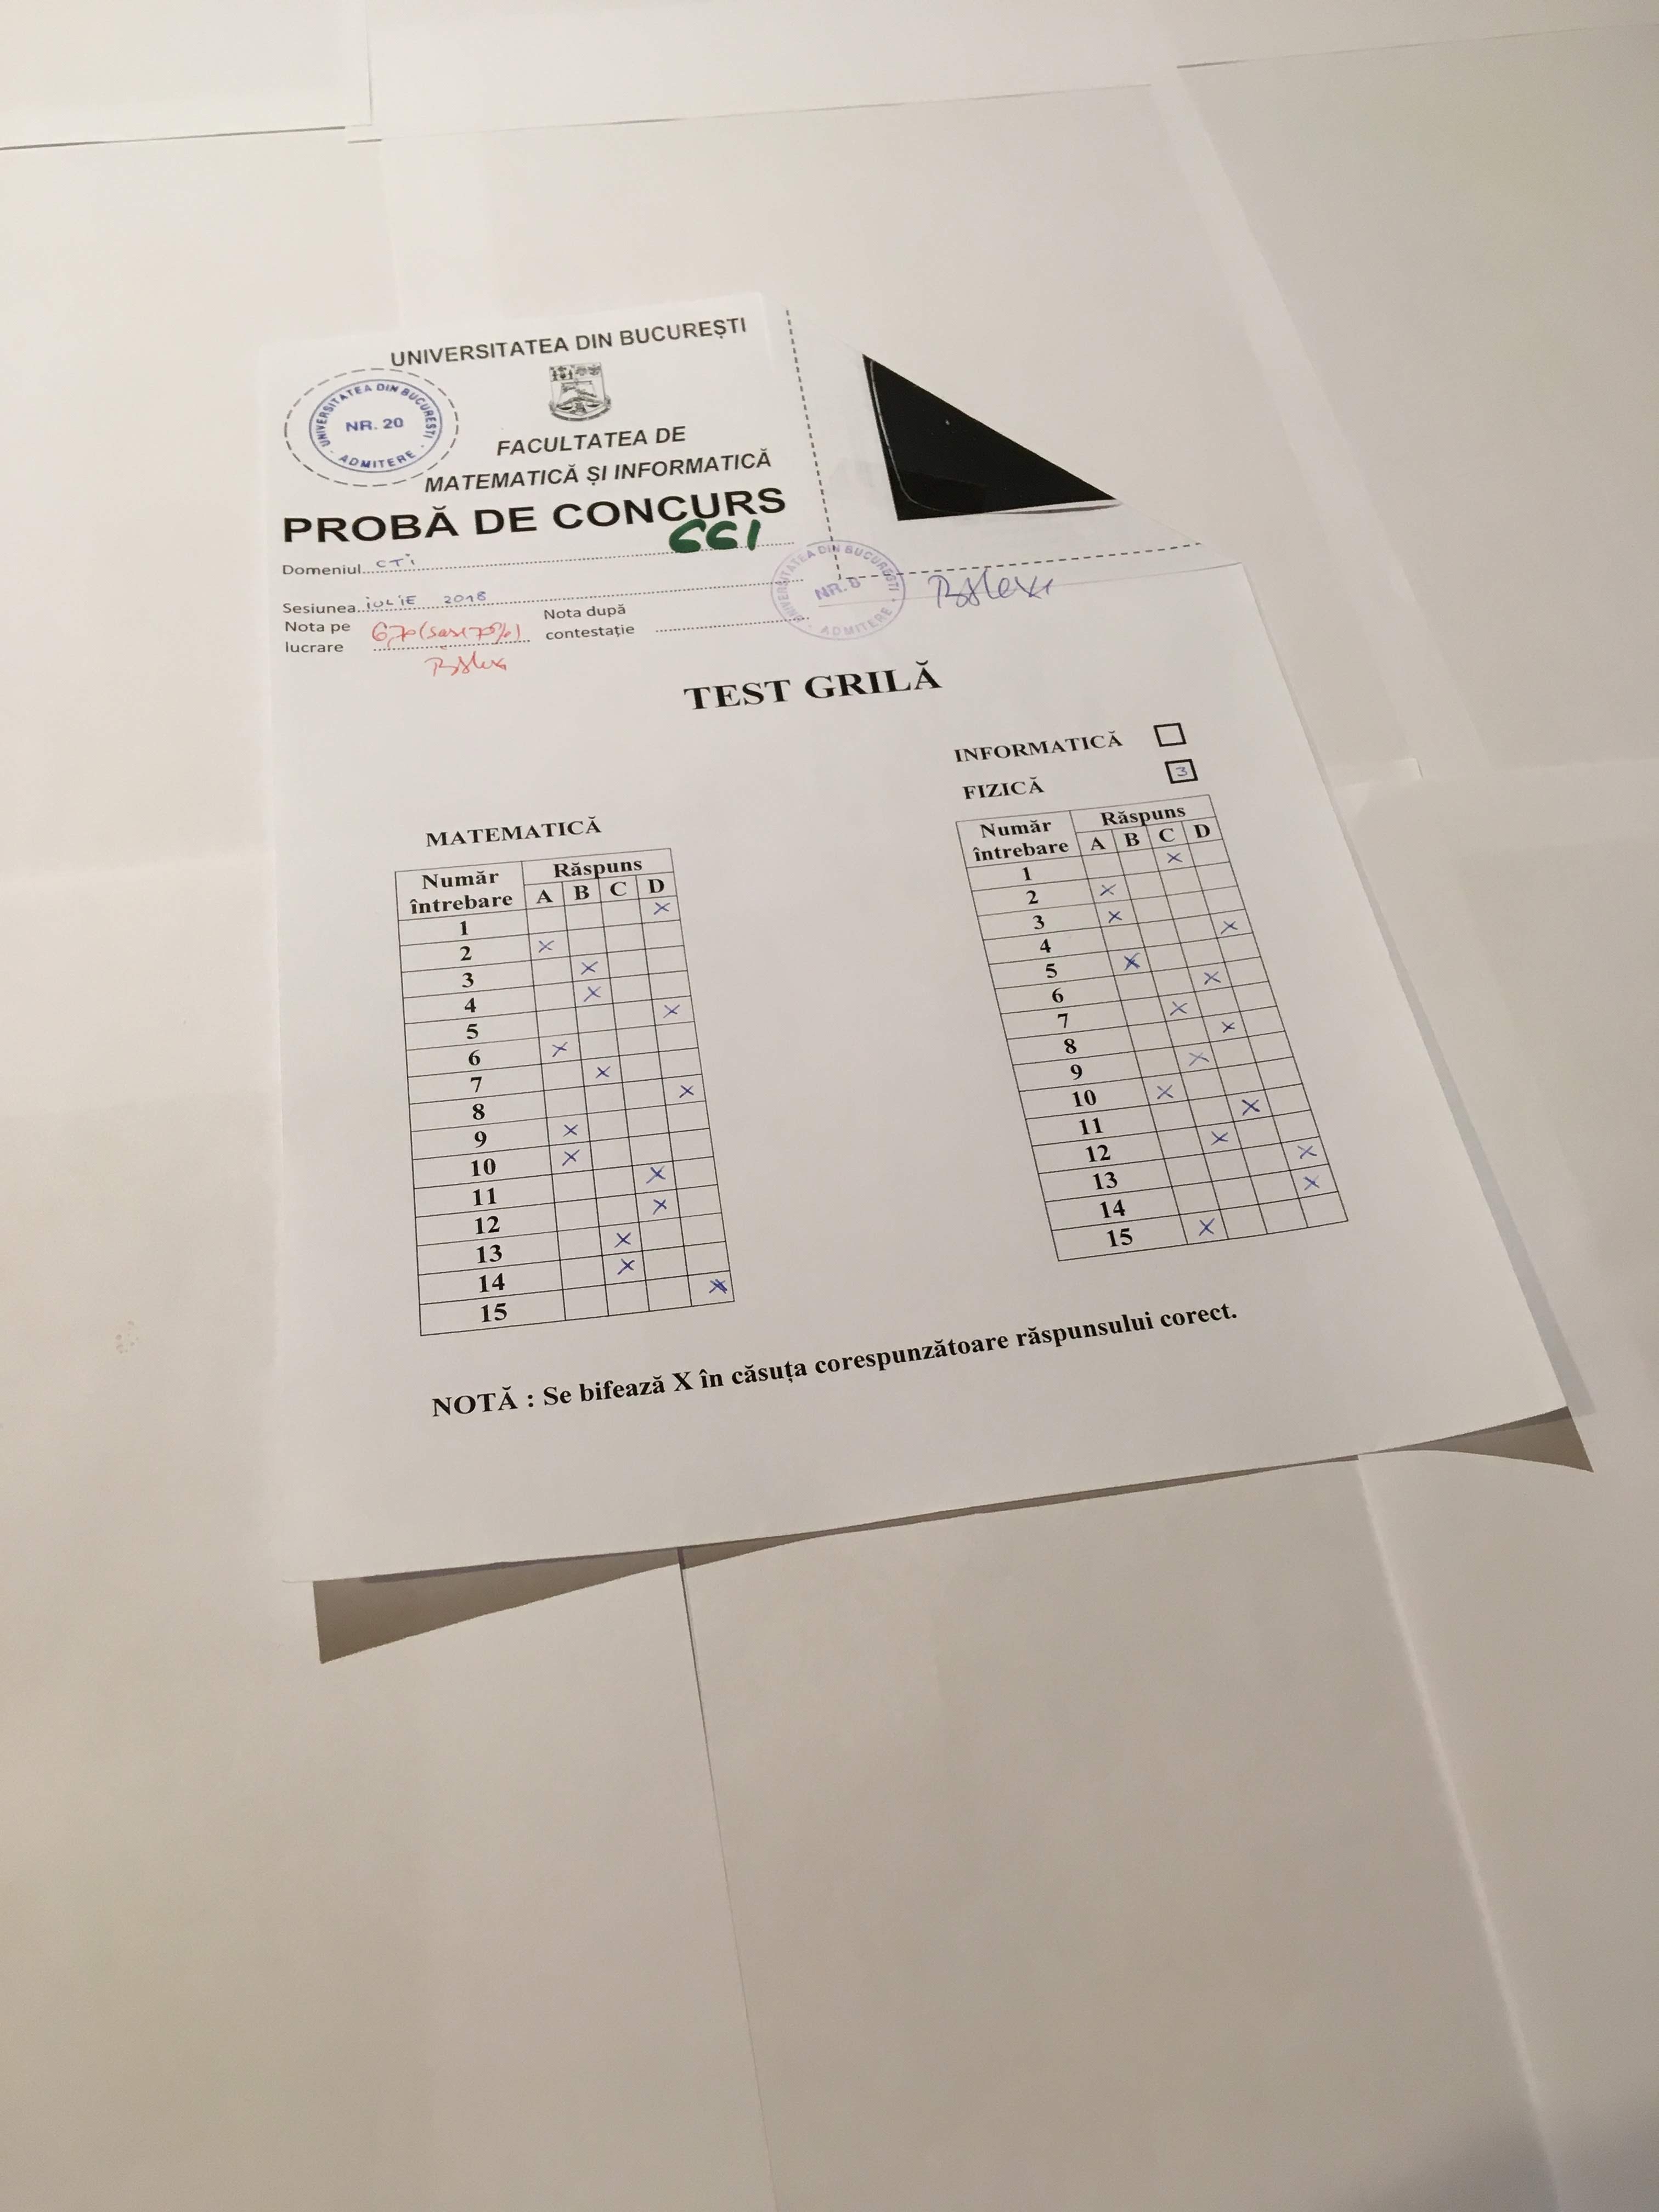 UNIVERSITATEA DIN BUCUREȘTI
UNIVERSITATEA DIN BUCUREȘTI
NR. 20
ADMITERE
FACULTATEA DE
MATEMATICĂ ȘI INFORMATICĂ
PROBĂ DE CONCURS
661
Domeniul CTI
Sesiunea IULIE 2018
Nota pe lucrare 6,70 (șase 70%)
Nota după contestație
UNIVERSITATEA DIN BUCUREȘTI
NR. 8
ADMITERE
TEST GRILĂ
MATEMATICĂ
Număr întrebare Răspuns
A B C D
1 X
2 X
3 X
4 X
5 X
6 X
7 X
8 X
9 X
10 X
11 X
12 X
13 X
14 X
15 X
INFORMATICĂ
FIZICĂ 3
Număr întrebare Răspuns
A B C D
1 X
2 X
3 X
4 X
5 X
6 X
7 X
8 X
9 X
10 X
11 X
12 X
13 X
14 X
15 X
NOTĂ : Se bifează X în căsuța corespunzătoare răspunsului corect.